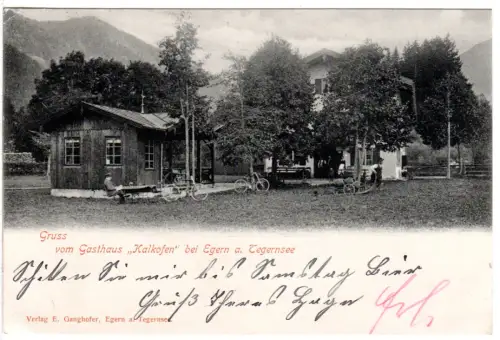 Gruss
vom Gasthaus „Kalkofen" bei Egern a. Tegernsee
Schiken Sie mir bis Samstag Bier
Gruß Theres Hagn
Verlag E. Ganghofer, Egern a. Tegernsee